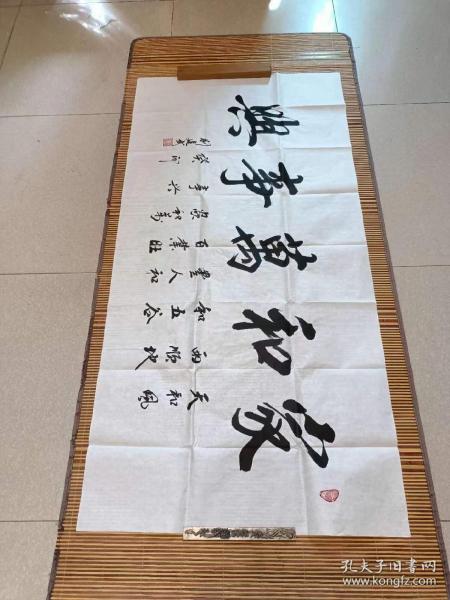 家和萬事興
天和風
雨順地
和五谷
豐人和
百業旺
家和萬
事兴
癸卯
孔夫子旧书网
www.kongfz.com